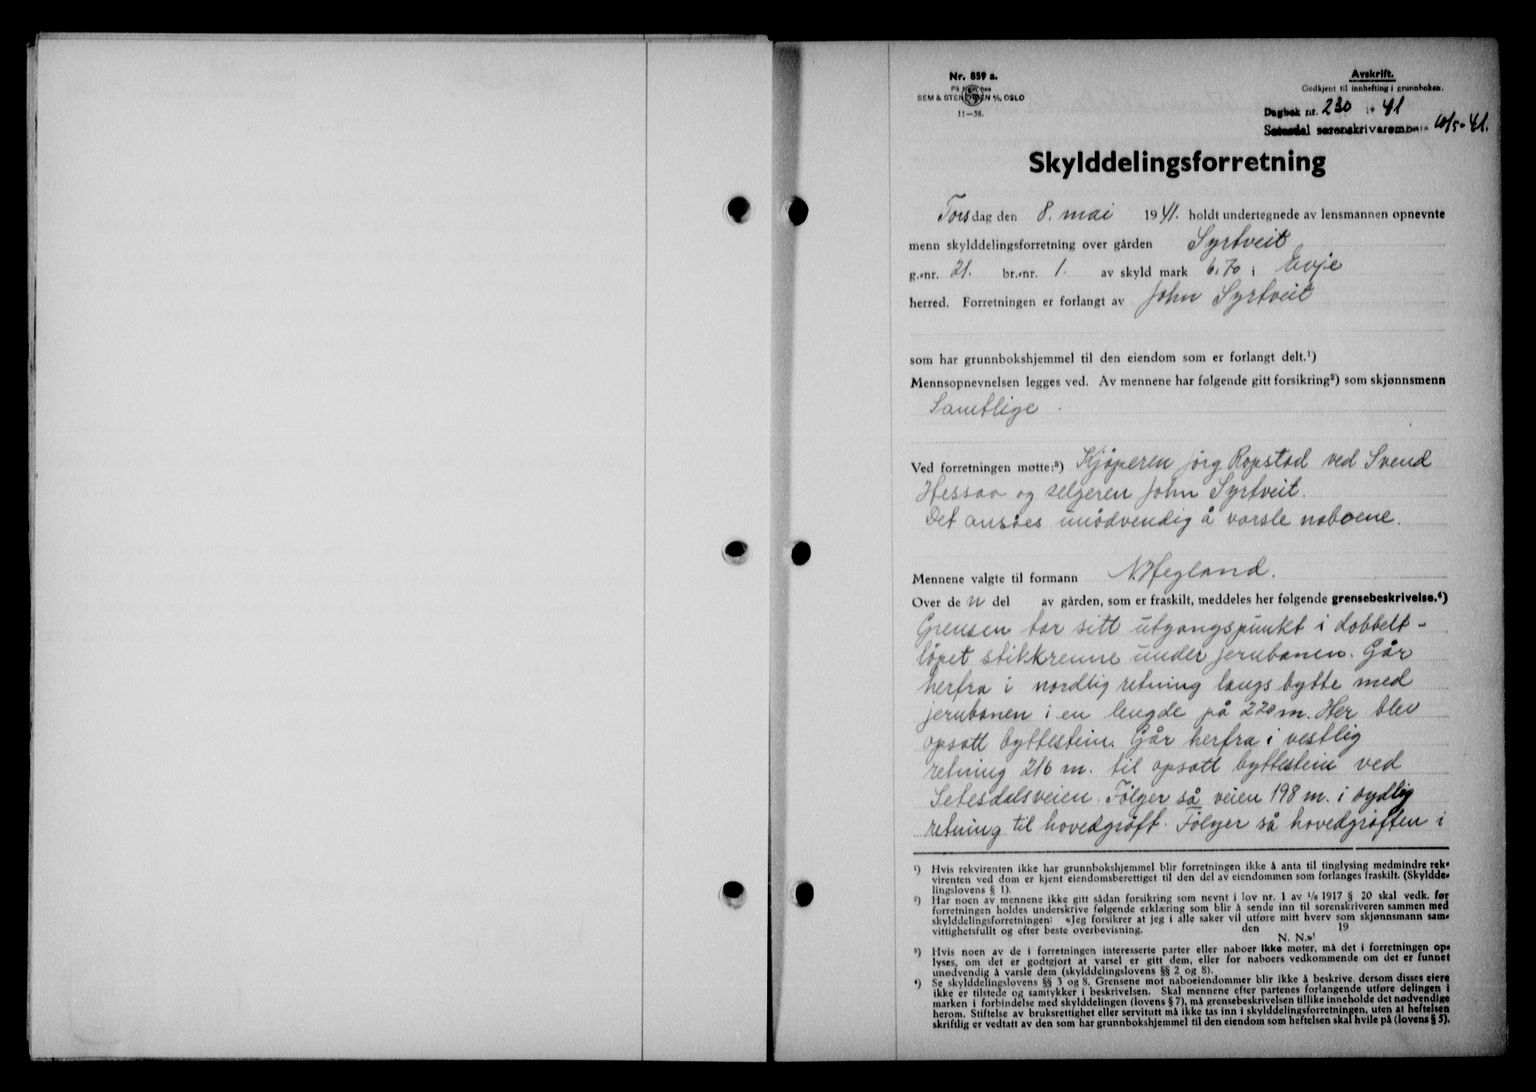 Nr. 859 a.
På lager hos
SEM & STENERSEN A/S, OSLO
11—38.
Avskrift.
Godkjent til innhefting i grunnboken.
Dagbok nr. 230 19 41
Setesdal sorenskrivarembete 10/5-41.
Skylddelingsforretning
Torsdag den 8. mai 1941. holdt undertegnede av lensmannen opnevnte
menn skylddelingsforretning over gården Syrtveit
g.-nr. 21. br.-nr. 1. av skyld mark 6,70 i Evje
herred. Forretningen er forlangt av John Syrtveit
som har grunnbokshjemmel til den eiendom som er forlangt delt.¹)
Mennsopnevnelsen legges ved. Av mennene har følgende gitt forsikring²) som skjønnsmenn
Samtlige.
Ved forretningen møtte:³) Kjöperen Jörg Ropstad ved Svend
Hessaa og selgeren John Syrtveit.
Det ansåes unödvendig å varsle naboene.
Mennene valgte til formann N. Hegland.
Over den del av gården, som er fraskilt, meddeles her følgende grensebeskrivelse.⁴)
Grensen tar sitt utgangspunkt i dobbelt-
löpet stikkrenne under jernbanen. Går
herfra i nordlig retning langs bytte med
jernbanen i en lengde på 220 m. Her blev
opsatt byttestein. Går herfra i vestlig
retning 216 m. til opsatt byttestein ved
Setesdalsveien. Fölger så veien 198 m. i sydlig
retning til hovedgröft. Fölger så hovedgröften i
¹) Hvis rekvirenten ikke har grunnbokshjemmel blir forretningen ikke å anta til tinglysing medmindre rek-
virenten ved dom er kjent eiendomsberettiget til den del av eiendommen som forlanges fraskilt. (Skyldde-
lingslovens § 1).
²) Har noen av mennene ikke gitt sådan forsikring som nevnt i lov nr. 1 av 1/6 1917 § 20 skal vedk. før
forretningen holdes underskrive følgende erklæring som blir å sende inn til sorenskriveren sammen med
skylddelingsforretningen: «Jeg forsikrer at jeg i alle saker vil utføre mitt hverv som skjønnsmann sam-
vittighetsfullt og efter beste overbevisning. den 19
N. N.»
³) Hvis noen av de i forretningen interesserte parter eller naboer ikke møter, må det i forretningen op-
lyses, om det er godtgjort at varsel er gitt dem, eller for naboers vedkommende om det er funnet
unødvendig å varsle dem (skylddelingslovens §§ 2 og 8).
⁴) Se skylddelingslovens §§ 3 og 8. Grensene mot naboeiendommer blir ikke å beskrive, dersom disses eiere
ikke er tilstede og samtykker i beskrivelsen. Skal mennene efter partenes forlangende utføre delingen i
marken i forbindelse med skylddelingen (lovens § 7), må grensebeskrivelsen tillike inneholde det nødvendige
herom. Stiftelse av bruksrettighet eller servitutt må ikke tas inn i skylddelingsforretningen, uten at heftelsen
skriftlig er vedtatt av den som har grunnbokshjemmel til den eiendom som heftelsen skal hvile på (lovens § 5).